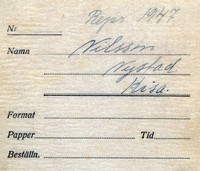 Repr 1947
Nr
Namn Nilsson
Nystad
Kisa.
Format
Papper Tid
Beställn.